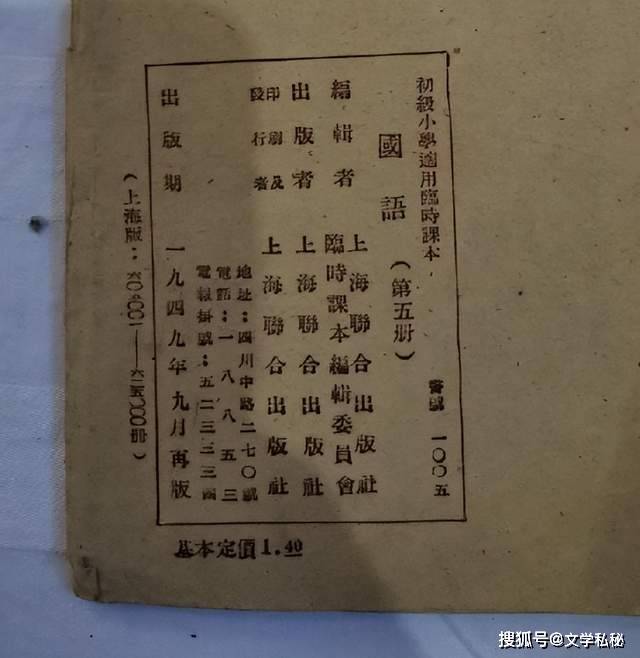 初級小學適用臨時課本
國語（第五册） 書號 一〇〇五
編輯者 上海聯合出版社
臨時課本編輯委員會
出版者 上海聯合出版社
印刷及發行者 上海聯合出版社
地址：四川中路二七〇號
電話：一八八五三
電報掛號：五二三三三
出版期 一九四九年九月再版
（上海版：
册）
基本定價1.40
搜狐号@文学私秘